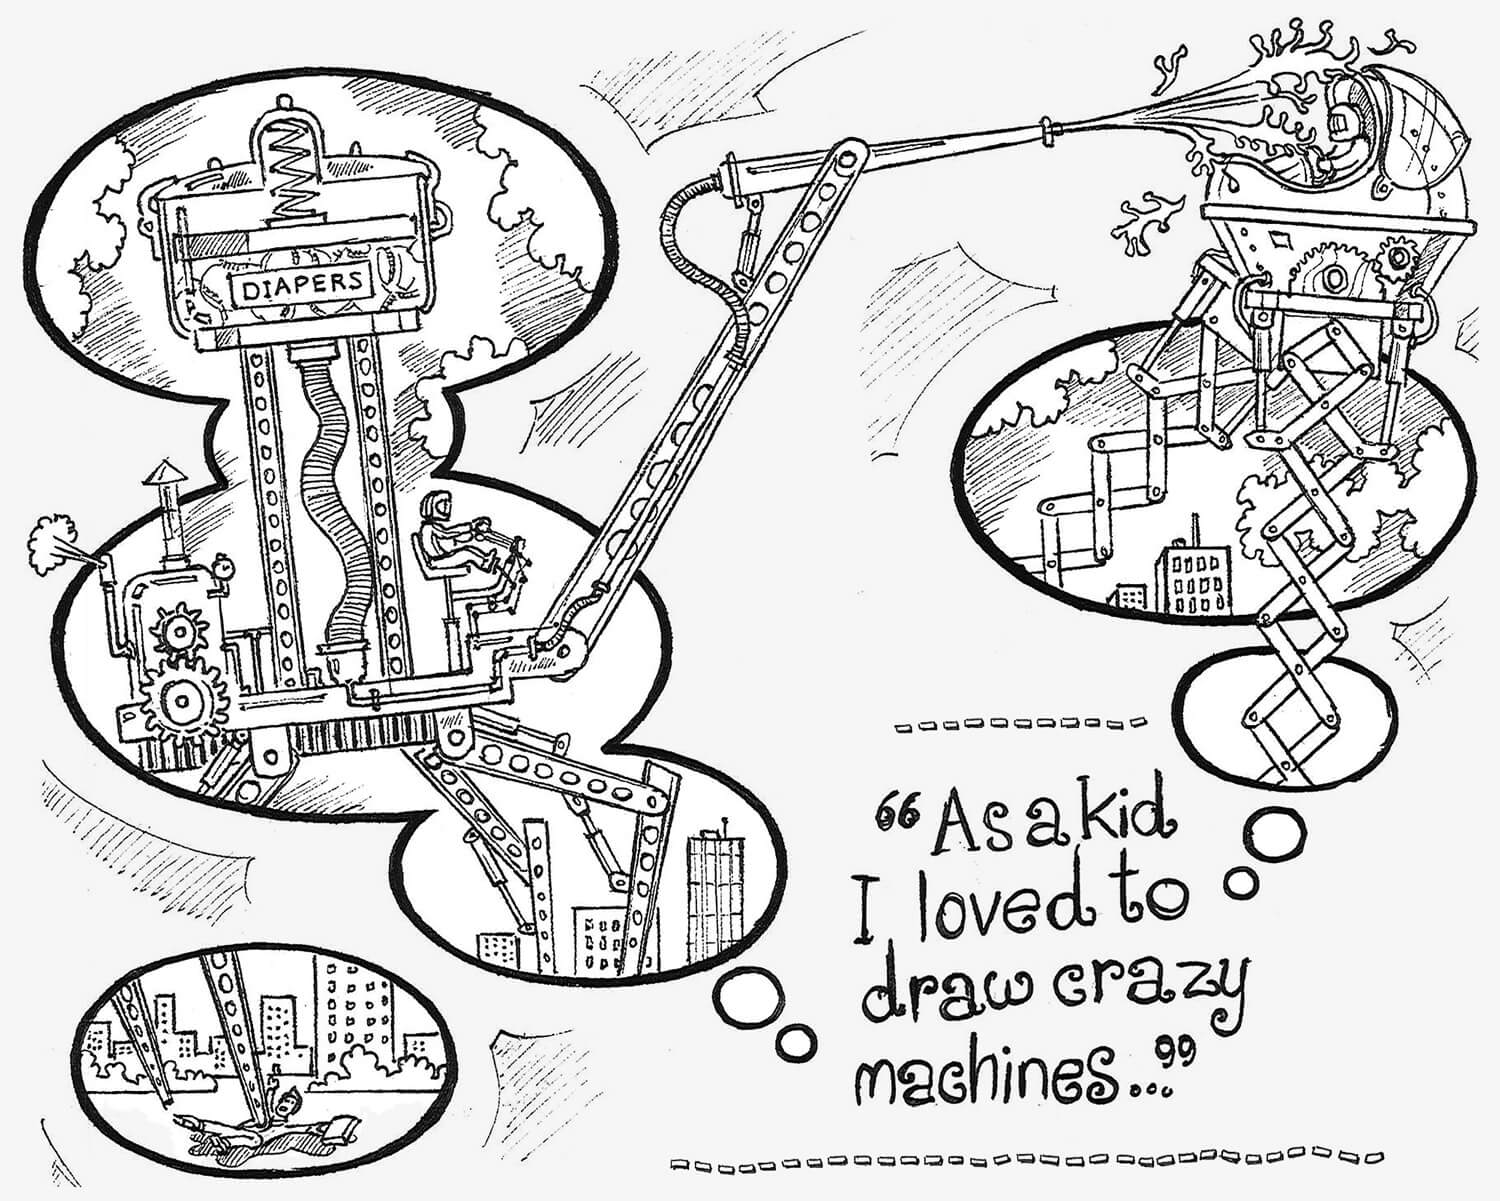 DIAPERS
“As a kid
I loved to
draw crazy
machines...”